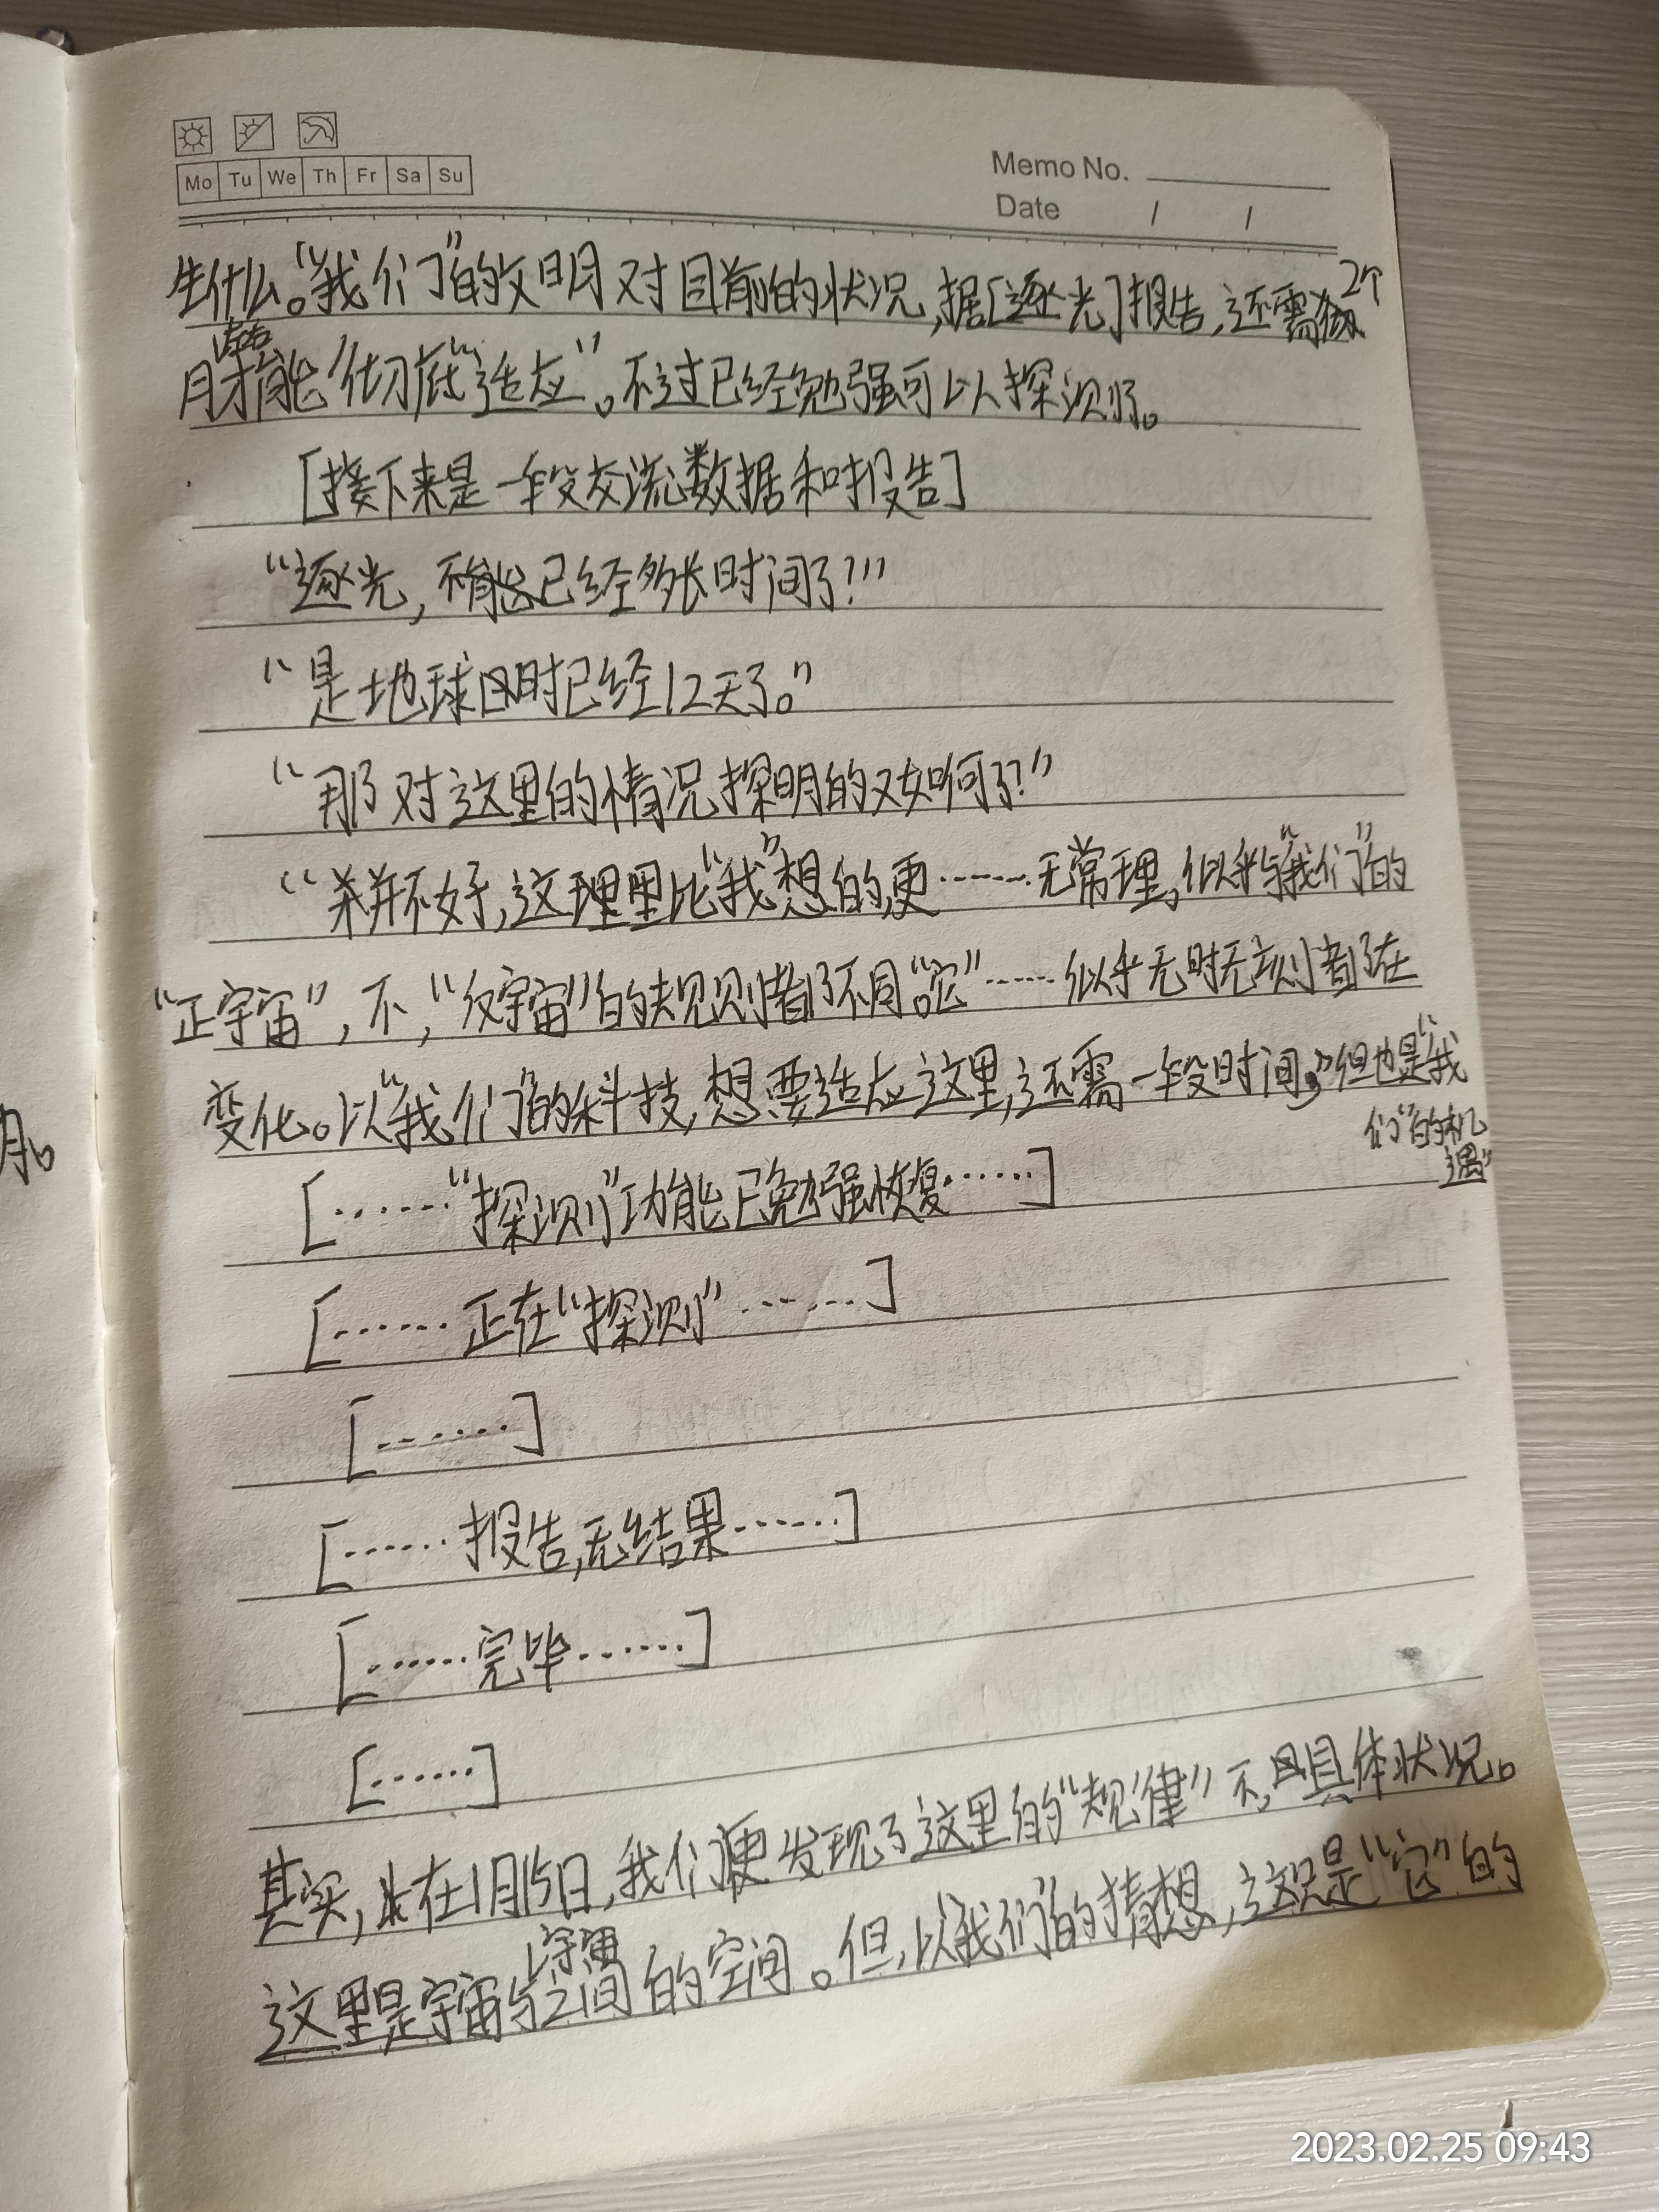 Mo Tu We Th Fr Sa Su
Memo No.
Date / /
生什么。“我们”的文明对目前的状况,据[逐光]报告,还需2个
月才能彻底“适应”。不过已经勉强可以探测了。
[接下来是一段交流数据和报告]
“逐光,已经多长时间了?”
“是地球时已经12天了。”
“那对这里的情况探明的又如何了?”
“并不好,这里比“我”想的更……无常理,似乎与“我们”的
“正宇宙”,不,“反宇宙”的规则都不同。“它”……似乎无时无刻都在
变化。以“我们”的科技,想要适应这里,还需一段时间,但也是“我
们”的机
遇”
[……“探测”功能已勉强恢复……]
[……正在“探测”……]
[……]
[……报告,无结果……]
[……完毕……]
[……]
其实,在1月15日,我们便发现了这里的“规律”不,具体状况。
这里是宇宙与宇宙之间的空间。但,以“我们”的猜想,这只是“它”的
月。
2023.02.25 09:43